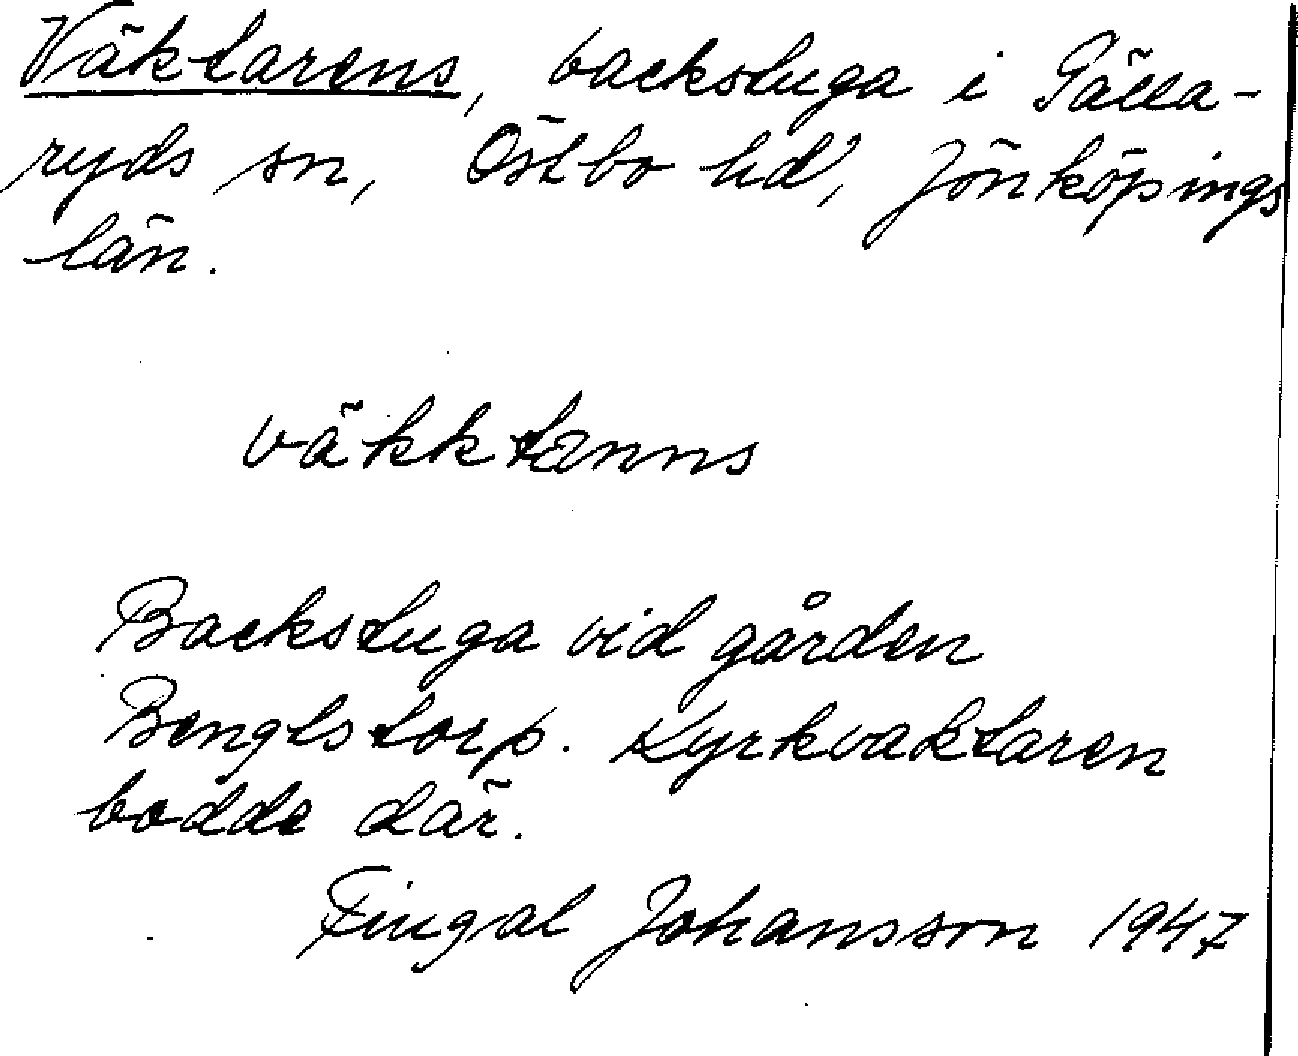 Väktarens, backstuga i Gälla-
ryds sn, Östbo hd, Jönköpings
län.
väkktænns
Backstuga vid gården
Bengtstorp. Kyrkvaktaren
bodde där.
Fingal Johansson 1947